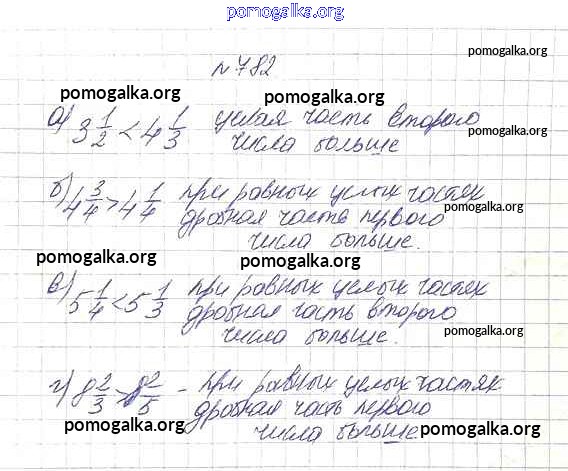 pomogalka.org
№ 782
pomogalka.org
pomogalka.org
pomogalka.org
а) 3 1/2 < 4 1/3 целая часть второго
числа больше
pomogalka.org
б) 4 3/4 > 4 1/4 при равных целых частях
дробная часть первого
pomogalka.org
числа больше.
pomogalka.org
pomogalka.org
в) 5 1/4 < 5 1/3 при равных целых частях
дробная часть второго
числа больше.
pomogalka.org
г) 8 2/3 > 8 2/5 - при равных целых частях
дробная часть первого
числа больше
pomogalka.org
pomogalka.org